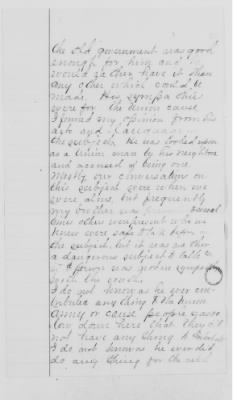 the old government was good
enough for him and he
would rather have it than
any other which could be
made. His sympathies
were for the Union cause
I formed my opinion from his
acts and
the subject. He was looked upon
as a Union man by his neighbors
and accused of being one.
Mostly our conversation on
this subject were when we
were alone, but frequently
my brother was present. Several
times others were present who we
knew were safe to talk before on
the subject, but it was as then
a dangerous subject to talk
if a person was
with the south.
I do not know as he ever con-
tributed any thing to the Union
Army or cause people was so
low down here that they did
not have any thing to
I do not know as he ever did
do any thing for the